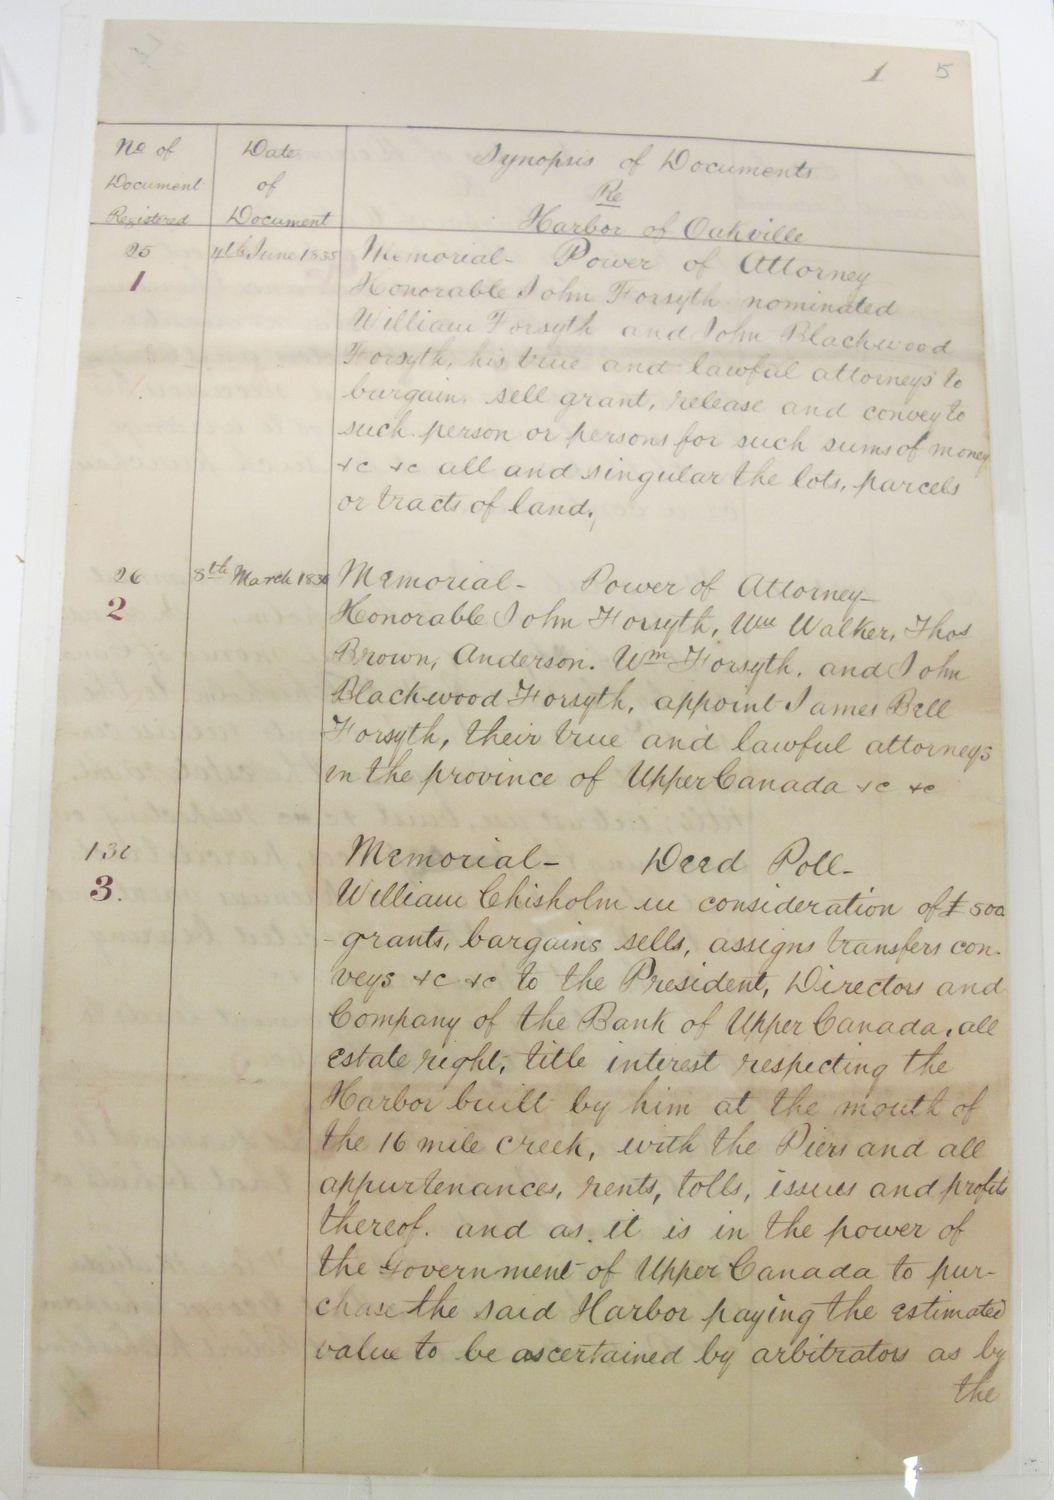 1 5
No of Document Registered
Date of Document
Synopsis of Documents
Re
Harbor of Oakville
25 4th June 1835 Memorial- Power of Attorney
1 Honorable John Forsyth nominated
William Forsyth and John Blackwood
Forsyth, his true and lawful attorneys to
bargain, sell grant, release and convey to
such person or persons for such sums of money
&c &c all and singular the lots, parcels
or tracts of land,
26 8th March 1836 Memorial- Power of Attorney-
2 Honorable John Forsyth, Wm Walker, Thos
Brown, Anderson. Wm Forsyth, and John
Blackwood Forsyth, appoint James Bell
Forsyth, their true and lawful attorneys
in the province of Upper Canada &c &c
Memorial- Deed Poll-
3. William Chisholm in consideration of £500
-grants, bargains sells, assigns transfers con-
veys &c &c to the President, Directors and
Company of the Bank of Upper Canada, all
estate right, title interest respecting the
Harbor built by him at the mouth of
the 16 mile creek, with the Piers and all
appurtenances, rents, tolls, issues and profits
thereof. and as. it is in the power of
the Government of Upper Canada to pur-
chase the said Harbor paying the estimated
value to be ascertained by arbitrators as by
the